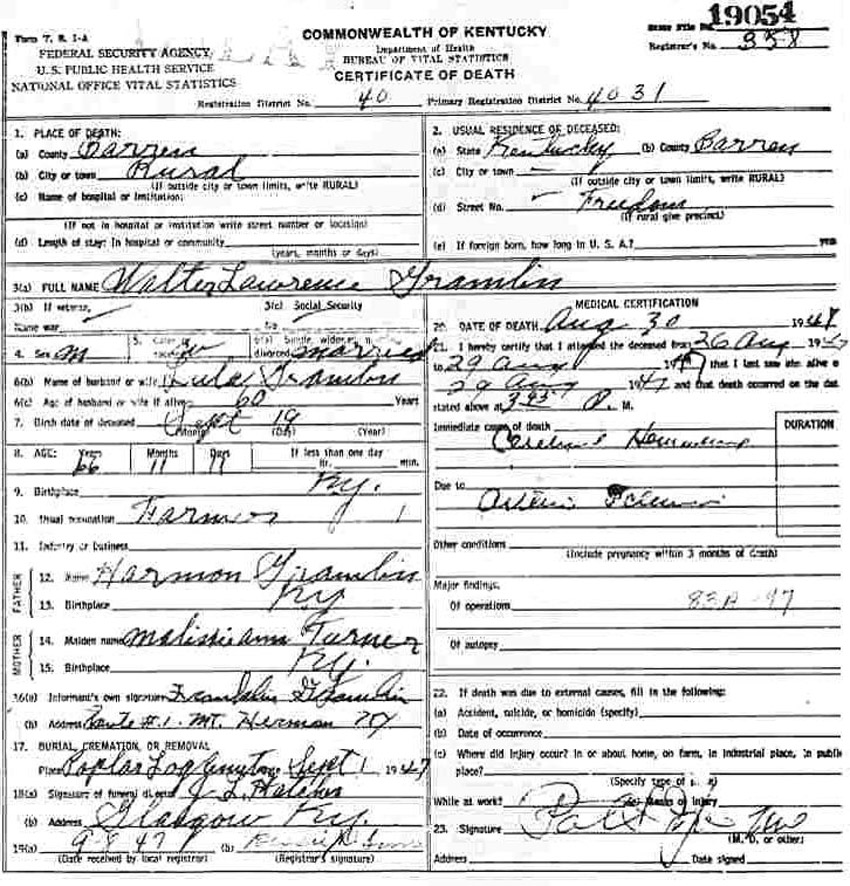 19054
Form V. S. 1-A
COMMONWEALTH OF KENTUCKY
State File No.
FEDERAL SECURITY AGENCY
Department of Health
Registrar's No. 358
U.S. PUBLIC HEALTH SERVICE
BUREAU OF VITAL STATISTICS
NATIONAL OFFICE VITAL STATISTICS
CERTIFICATE OF DEATH
Registration District No. 40 Primary Registration District No. 4031
1. PLACE OF DEATH:
(a) County Barren
(b) City or town Rural
(If outside city or town limits, write RURAL)
(c) Name of hospital or institution:
(If not in hospital or institution write street number or location)
(d) Length of stay: In hospital or community
(years, months or days)
2. USUAL RESIDENCE OF DECEASED:
(a) State Kentucky (b) County Barren
(c) City or town —
(If outside city or town limits, write RURAL)
(d) Street No. Freedom
(If rural give precinct)
(e) If foreign born, how long in U. S. A.? years
3(a) FULL NAME Walter Lawrence Gramlin
3(b) If veteran, 3(c) Social Security
Name war No.
4. Sex M 5. Color or race W 6(a) Single, widowed, married, divorced married
6(b) Name of husband or wife Lula Gramlin
6(c) Age of husband or wife if alive 60 Years
7. Birth date of deceased Sept 19
(Month) (Day) (Year)
8. AGE: Years Months Days If less than one day
66 11 11 hr. min.
9. Birthplace Ky.
10. Usual occupation Farmer
11. Industry or business
FATHER
12. Name Harmon Gramlin
13. Birthplace Ky
MOTHER
14. Maiden name Turner
15. Birthplace Ky.
16(a) Informant's own signature Franklin Gramlin
(b) Address Route #1. Mt. Herman Ky
17. BURIAL, CREMATION, OR REMOVAL
Place Poplar Log Sept 1 1947
18(a) Signature of funeral director J L Hatcher
(b) Address Glasgow Ky.
19(a) 9-8-47 (b)
(Date received by local registrar) (Registrar's signature)
MEDICAL CERTIFICATION
20. DATE OF DEATH Aug 30 1947
21. I hereby certify that I attended the deceased from 26 Aug 1947
to 29 Aug 1947 that I last saw him alive o
29 Aug 1947 and that death occurred on the dat
stated above at P. M.
Immediate cause of death DURATION
Due to
Other conditions
(Include pregnancy within 3 months of death)
Major findings:
Of operations 83A-97
Of autopsy
22. If death was due to external causes, fill in the following:
(a) Accident, suicide, or homicide (specify)
(b) Date of occurrence
(c) Where did injury occur? In or about home, on farm, in industrial place, in public
place?
(Specify type of place)
While at work? (e) Means of injury
23. Signature
(M. D. or other)
Address Date signed